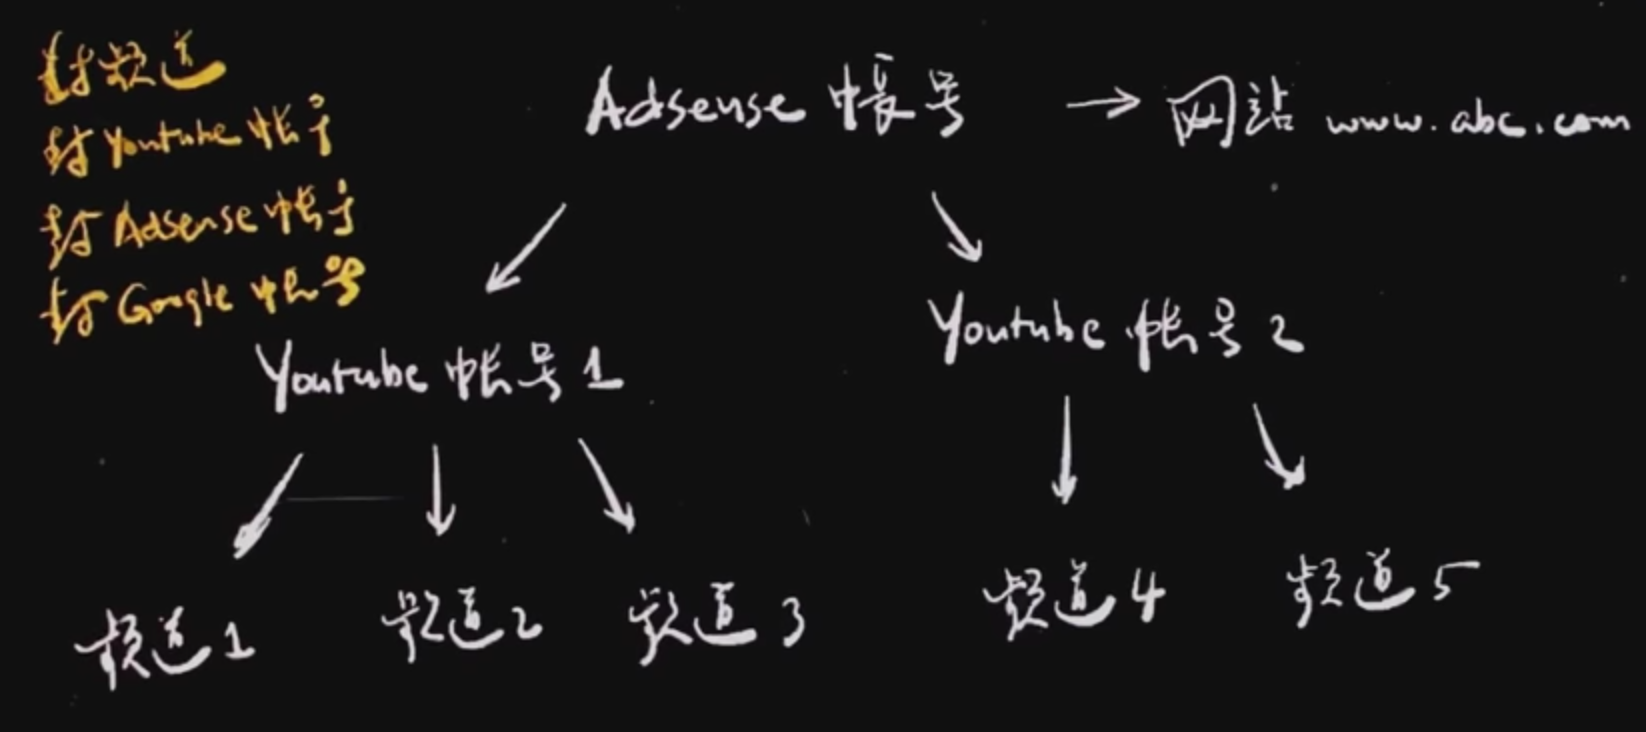 封频道
封 Youtube 帐号
封 Adsense 帐号
封 Google 帐号
Adsense 帐号 → 网站 www.abc.com
Youtube 帐号 1
Youtube 帐号 2
频道 1
频道 2
频道 3
频道 4
频道 5